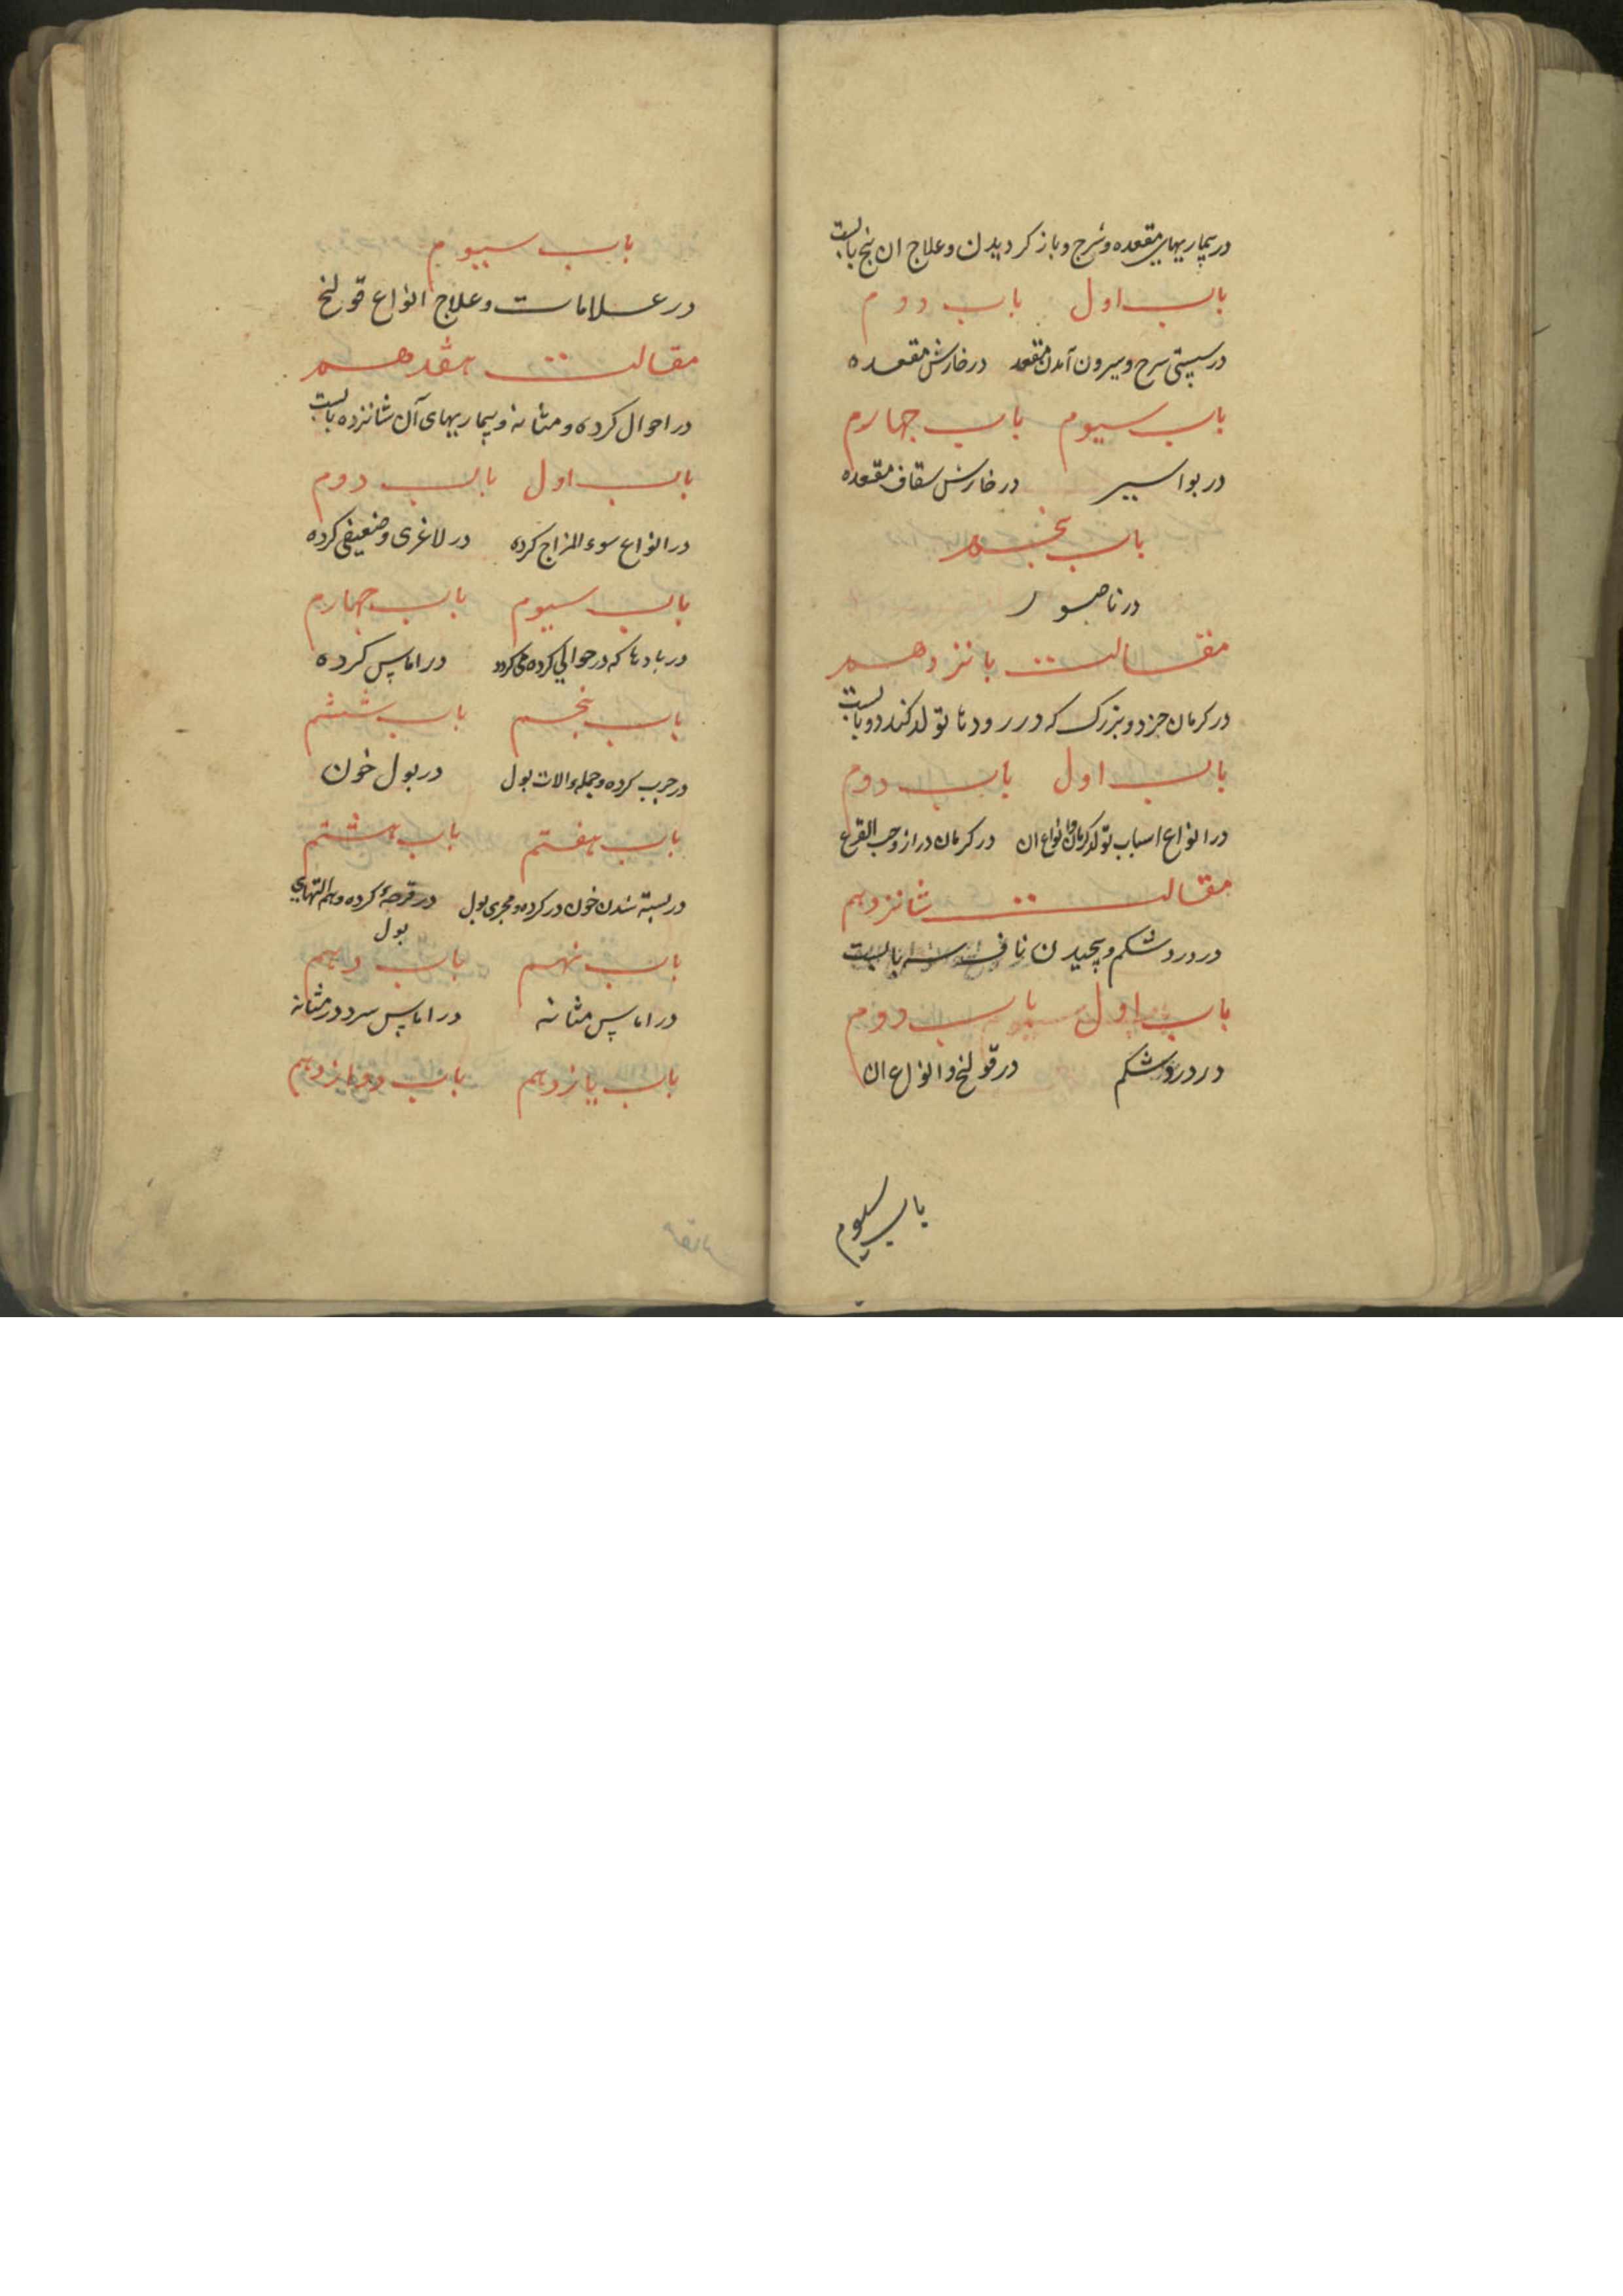 در بیماریهای مقعده و شرج و باز کردیدن و علاج ان پنج بابست
باب اول باب دوم
در سستی شرج و بیرون آمدن مقعد در خارش مقعده
باب سیوم باب چهارم
در بواسیر در خارش سقاف مقعده
باب پنجم
در ناصور
مقالت پانزدهم
در کرمان خرد و بزرک که در رودها تولد کند دو بابست
باب اول باب دوم
در انواع اسباب تولد کرمان و انواع ان در کرمان دراز و حب القرع
مقالت شانزدهم
در درد شکم و پیچیدن ناف سه بابست
باب اول باب دوم
در درد شکم در قولنج و انواع ان
باب سیوم
باب سیوم
در علامات و علاج انواع قولنج
مقالت هفدهم
در احوال کرده و مثانه و بیماریهای آن شانزده بابست
باب اول باب دوم
در انواع سوء المزاج کرده در لاغری و ضعیفی کرده
باب سیوم باب چهارم
در بادها که در حوالی کرده می کردد در اماس کرده
باب پنجم باب ششم
در جرب کرده و جمله الات بول در بول خون
باب هفتم باب هشتم
در بسته شدن خون در کرده و مجری بول در قرحهٔ کرده و هم التهای
بول
باب نهم باب دهم
در اماس مثانه در اماس سرد در مثانه
باب یازدهم باب دوازدهم